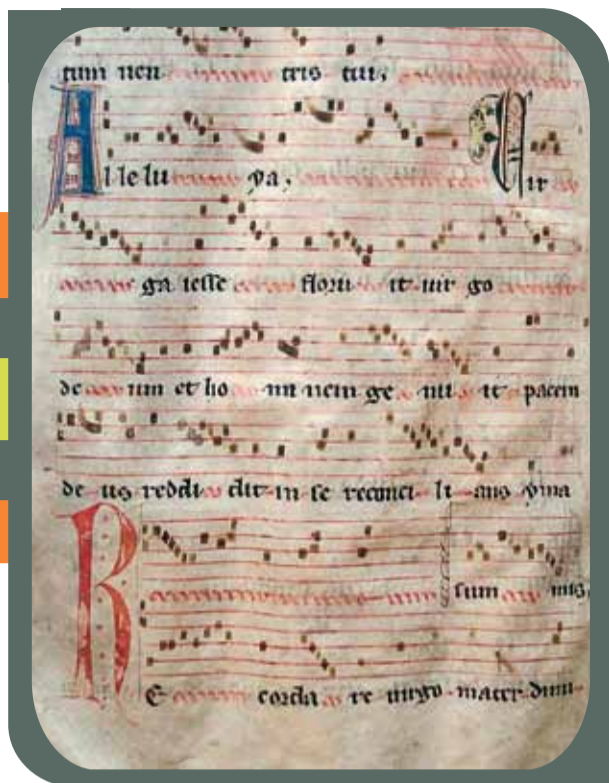 tum uen tris tui,
Al le lu ya, Vir
ga iesse floru it uir go
de um et ho mi nem ge nu it pacem
de us reddi dit in se reconci li ans yma
sum mis,
RE corda re uirgo mater dum